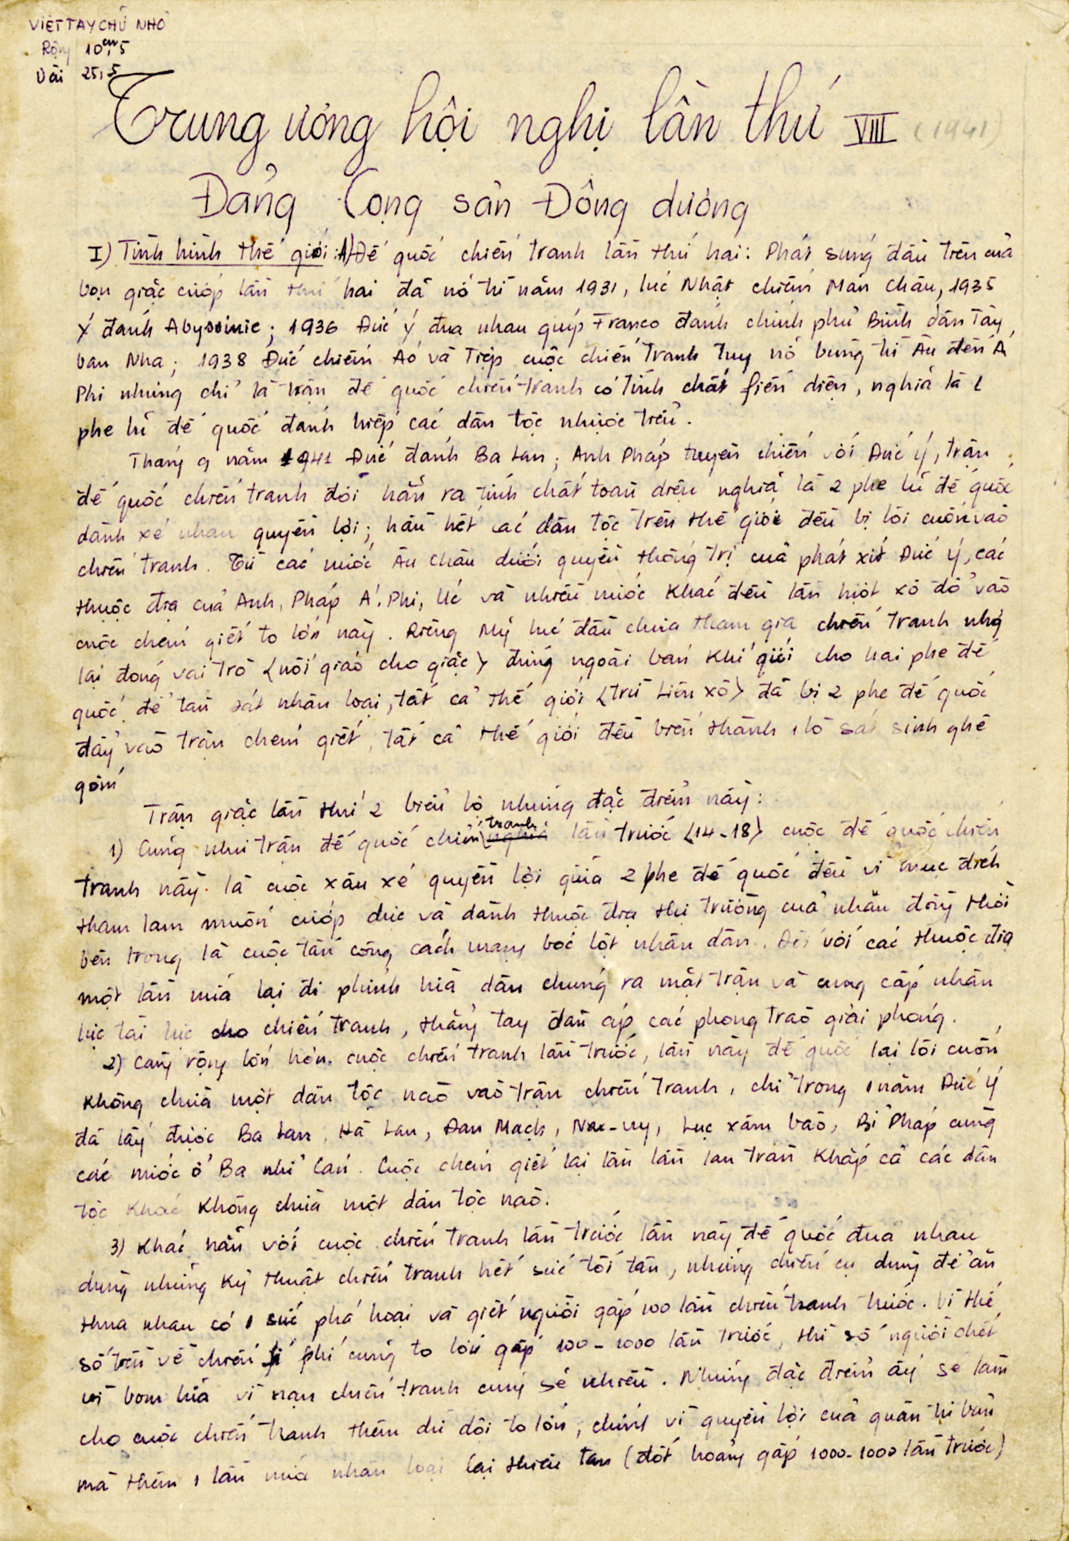 VIẾT TAY CHỮ NHỎ
Rộng 10cm,5
Dài 25,5
Trung ương hội nghị lần thứ VIII (1941)
Đảng Cọng sản Đông dương
I) Tình hình thế giới: 1) Đế quốc chiến tranh lần thứ hai: Phát súng đầu trên của
bọn giặc cướp lần thứ hai đã nổ từ năm 1931, lúc Nhật chiếm Mãn châu, 1935
Ý đánh Abyssinie; 1936 Đức Ý đua nhau giúp Franco đánh chính phủ Bình dân Tây
ban Nha; 1938 Đức chiếm Áo và Tiệp cuộc chiến tranh tuy nổ bùng từ Âu đến Á
Phi nhưng chỉ là trận đế quốc chiến tranh có tính chất fiến diện, nghĩa là 1
phe lũ đế quốc đánh hiếp các dân tộc nhược tiểu.
Tháng 9 năm 1941 Đức đánh Ba Lan; Anh Pháp tuyên chiến với Đức Ý, trận
đế quốc chiến tranh đổi hẳn ra tính chất toàn diện nghĩa là 2 phe lũ đế quốc
dành xé nhau quyền lợi; hầu hết các dân tộc trên thế giới đều bị lôi cuốn vào
chiến tranh. Từ các nước Âu châu dưới quyền thống trị của phát xít Đức Ý, các
thuộc địa của Anh, Pháp Á, Phi, Úc và nhiều nước khác đều lần lượt xô đổ vào
cuộc chém giết to lớn này. Riêng Mỹ lúc đầu chưa tham gia chiến tranh nhg
lại đóng vai trò <nối giáo cho giặc> đứng ngoài bán khí giới cho hai phe đế
quốc để tàn sát nhân loại, tất cả thế giới <trừ Liên xô> đã bị 2 phe đế quốc
đẩy vào trận chém giết, tất cả thế giới đều biến thành 1 lò sát sinh ghê
gớm
Trận giặc lần thứ 2 biểu lộ những đặc điểm này:
1) Cũng như trận đế quốc chiến tranh lần trước <14-18> cuộc đế quốc chiến
tranh này là cuộc xâu xé quyền lợi giữa 2 phe đế quốc đều vì mục đích
tham lam muốn cướp đức và dành thuộc địa thị trường của nhau đồng thời
bên trong là cuộc tấn công cách mạng bóc lột nhân dân. Đối với các thuộc địa
một lần nữa lại đi phỉnh lừa dân chúng ra mặt trận và cung cấp nhân
lực tài lực cho chiến tranh, thẳng tay đàn áp các phong trào giải phóng.
2) Càng rộng lớn hơn cuộc chiến tranh lần trước, lần này đế quốc lại lôi cuốn
không chừa một dân tộc nào vào trận chiến tranh, chỉ trong 1 năm Đức Ý
đã lấy được Ba Lan, Hà Lan, Đan Mạch, Na-uy, Lục xâm bảo, Bỉ Pháp cùng
các nước ở Ba nhĩ Cán. Cuộc chém giết lại lần lần lan tràn khắp cả các dân
tộc khác không chừa một dân tộc nào.
3) Khác hẳn với cuộc chiến tranh lần trước lần này đế quốc đua nhau
dùng những kỹ thuật chiến tranh hết sức tối tân, những chiến cụ dùng để ăn
thua nhau có 1 sức phá hoại và giết người gấp 100 lần chiến tranh trước. Vì thế
số tiền về chiến phí cũng to lớn gấp 100-1000 lần trước, thì số người chết
vì bom lửa vì nạn chiến tranh cũng sẽ nhiều. Những đặc điểm ấy sẽ làm
cho cuộc chiến tranh thêm dữ dội to lớn, chính vì quyền lợi của quân tư bản
mà thêm 1 lần nữa nhân loại lại thiêu tàn (đốt hoảng gấp 1000-1000 lần trước)